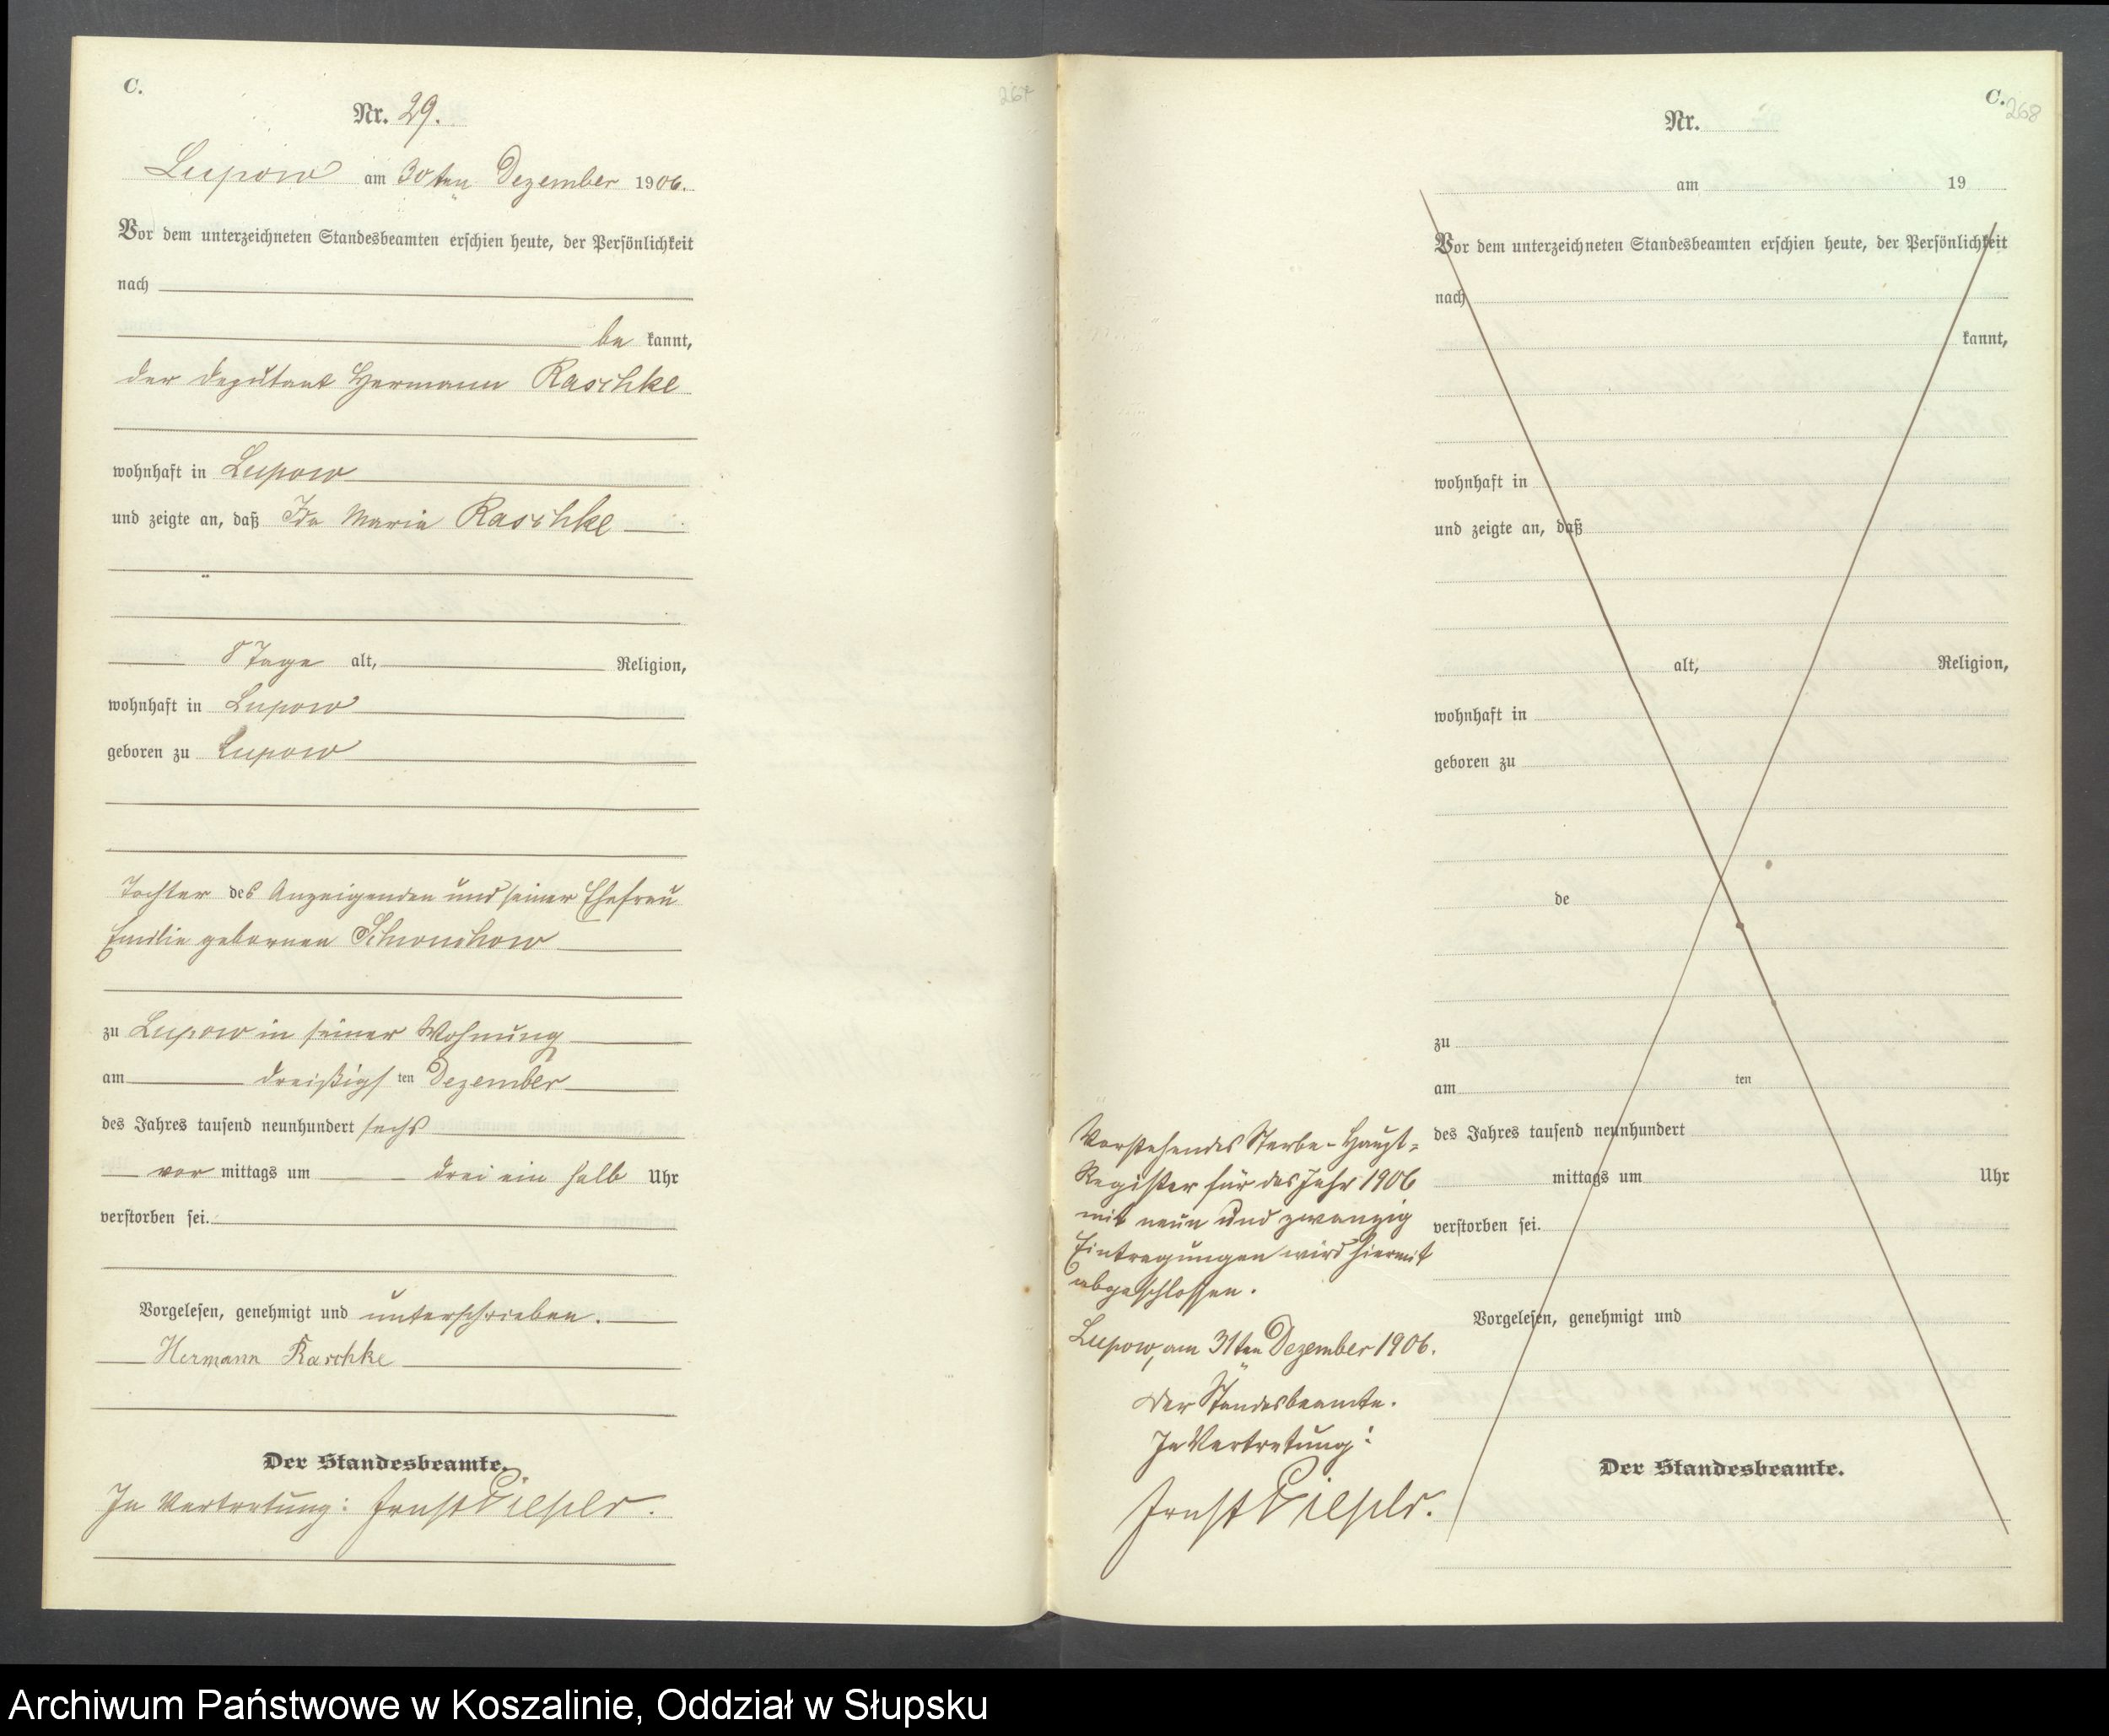 C.
Nr. 29.
267
Lupow am 30ten Dezember 1906.
Vor dem unterzeichneten Standesbeamten erschien heute, der Persönlichkeit
nach
be kannt,
der Deputant Hermann Raschke
wohnhaft in Lupow
und zeigte an, daß Ida Maria Raschke
8 Tage alt, Religion,
wohnhaft in Lupow
geboren zu Lupow
Tochter des Anzeigenden und seiner Ehefrau
Emilie gebornen
zu Lupow in seiner Wohnung
am dreißigsten Dezember
des Jahres tausend neunhundert sechs
vor mittags um drei ein halb Uhr
verstorben sei.
Vorgelesen, genehmigt und unterschrieben.
Hermann Raschke
Der Standesbeamte.
In Vertretung: Ernst
C.
268
Nr.
am 19
Vor dem unterzeichneten Standesbeamten erschien heute, der Persönlichkeit
nach
kannt,
wohnhaft in
und zeigte an, daß
alt, Religion,
wohnhaft in
geboren zu
de
zu
am ten
des Jahres tausend neunhundert
mittags um Uhr
verstorben sei.
Vorgelesen, genehmigt und
Der Standesbeamte.
Vorstehendes Sterbe-Haupt-
Register für das Jahr 1906
mit neun und zwanzig
Eintragungen wird hiermit
abgeschlossen.
Lupow, am 31ten Dezember 1906.
Der Standesbeamte.
In Vertretung:
Ernst
Archiwum Państwowe w Koszalinie, Oddział w Słupsku